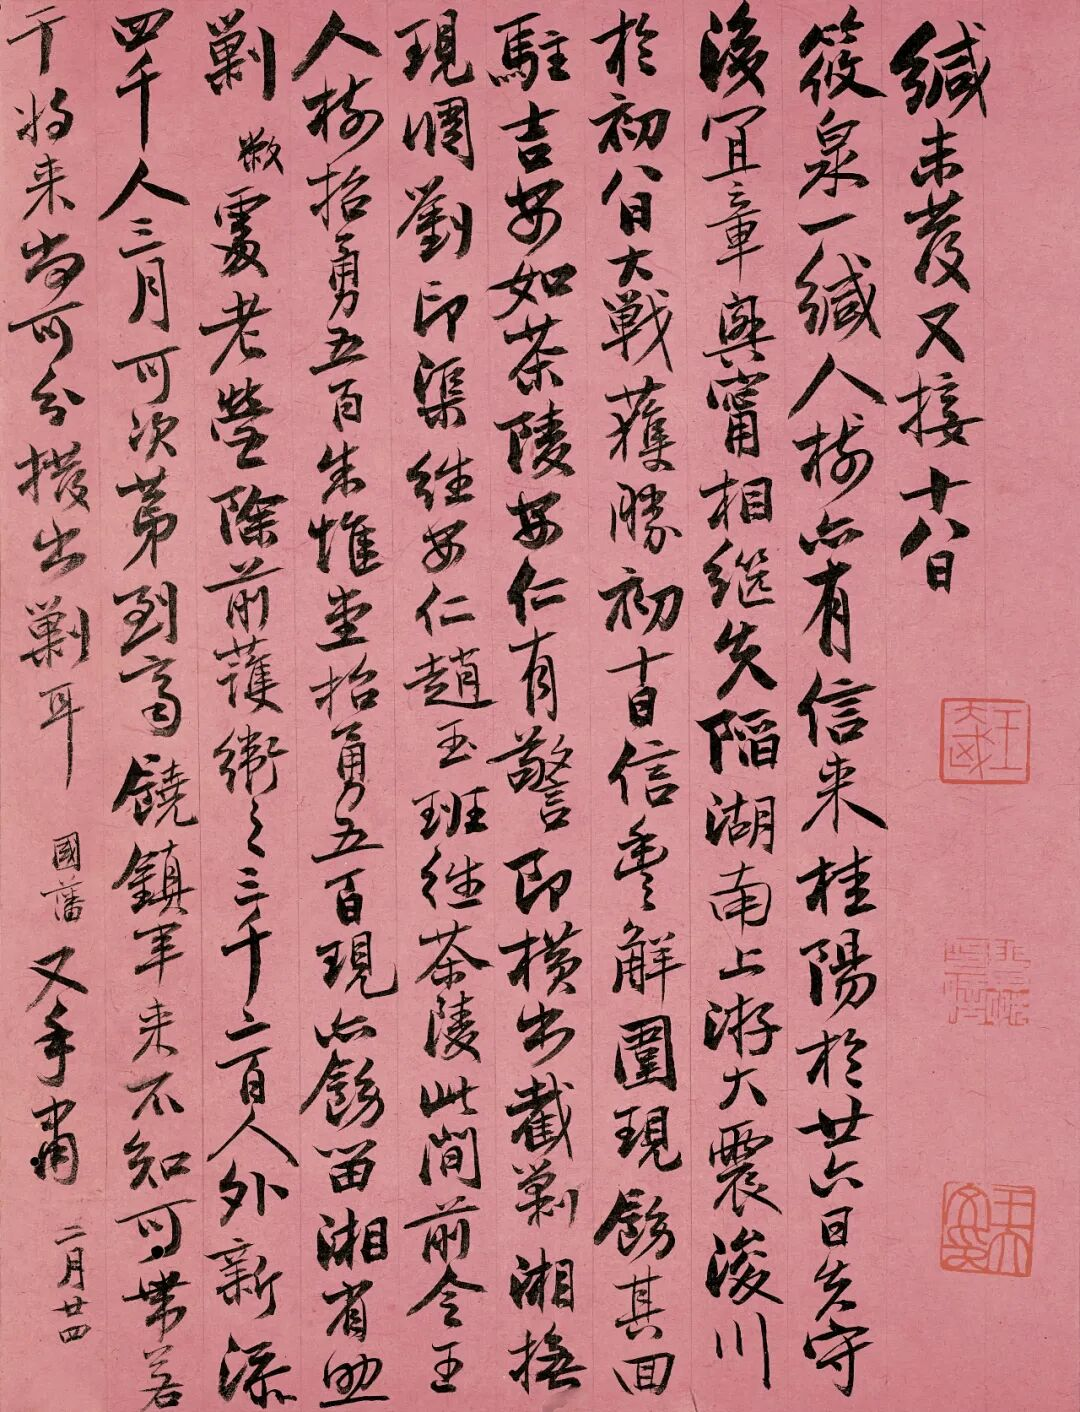 緘未發又接十八日
筱泉一緘人樹亦有信來桂陽於廿六日失守
後宜章興甯相繼失陷湖南上游大震浚川
於初八日大戰獲勝初十日信豐解圍現飭其回
駐吉安如茶陵安仁有警即橫出截剿湘撫
現調劉印渠往安仁趙玉班往茶陵此間前令王
人樹招勇五百朱惟堂招勇五百現亦飭留湘省助
剿敝處老營除前護衛之三千二百人外新添
四千人三月可次第到齊饒鎮軍來不知可帶若
干將來尚可分撥出剿耳 國藩又手肅 二月廿四